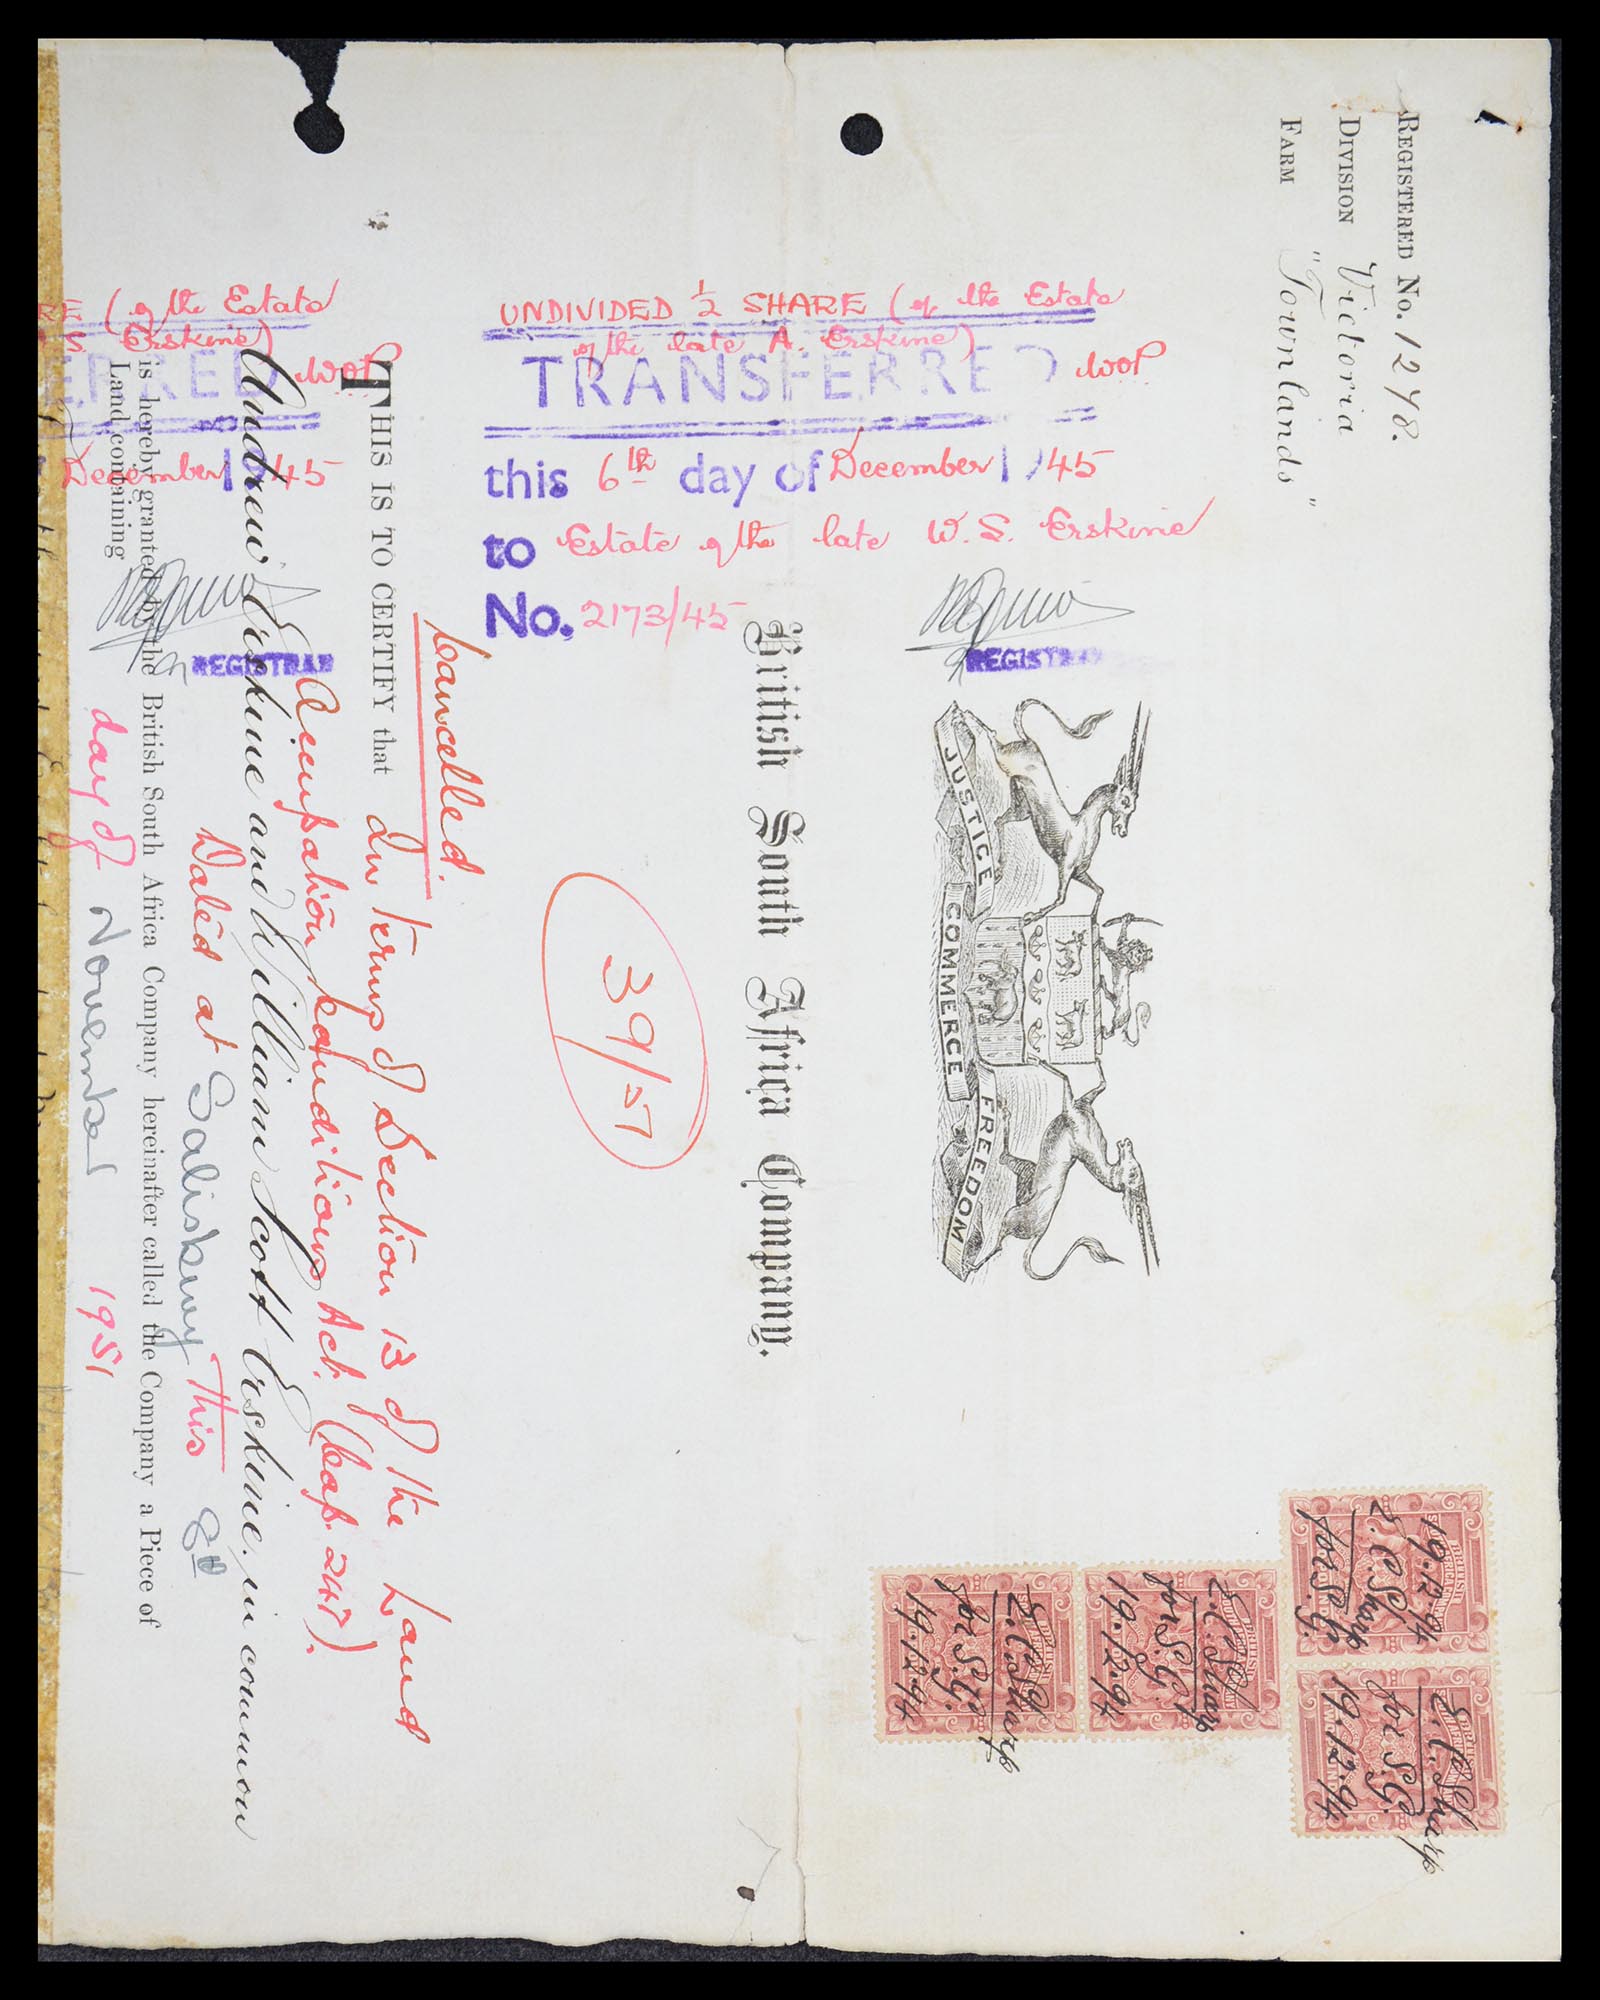 REGISTERED No. 1248.
DIVISION Victoria
FARM "Townlands"
JUSTICE COMMERCE FREEDOM
British South Africa Company.
39/57
Cancelled.
THIS IS TO CERTIFY that In terms of Section 13 of the Land
Occupation Conditions Act (Cap. 247).
Andrew Erskine and William Scott Erskine, in common
Dated at Salisbury this 8th
is hereby granted by the British South Africa Company hereinafter called the Company a Piece of
Land containing
day of November 1951
UNDIVIDED 1/2 SHARE (of the Estate
of the late A. Erskine)
TRANSFERRED
this 6th day of December 1945
to Estate of the late W. S. Erskine
No. 2173/45
REGISTRAR
RE (of the Estate
S. Erskine)
ERRED
December 1945
REGISTRAR
19.12.94
E.C. Sharp
for S.G.
E.C. Sharp
for S.G.
19.12.94
E.C. Sharp
for S.G.
19.12.94
E.C. Sharp
for S.G.
19.12.94